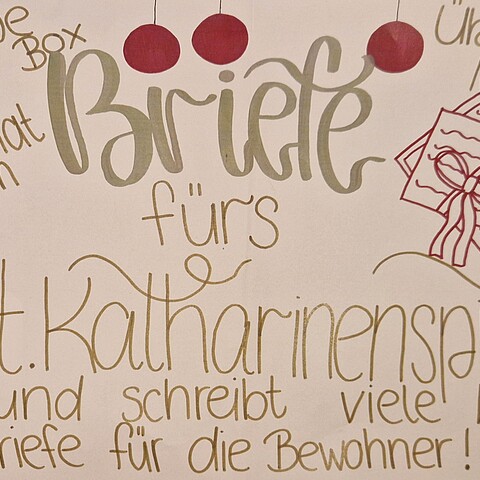 Box
Briefe
fürs
t. Katharinensp
und schreibt viele
riefe für die Bewohner!